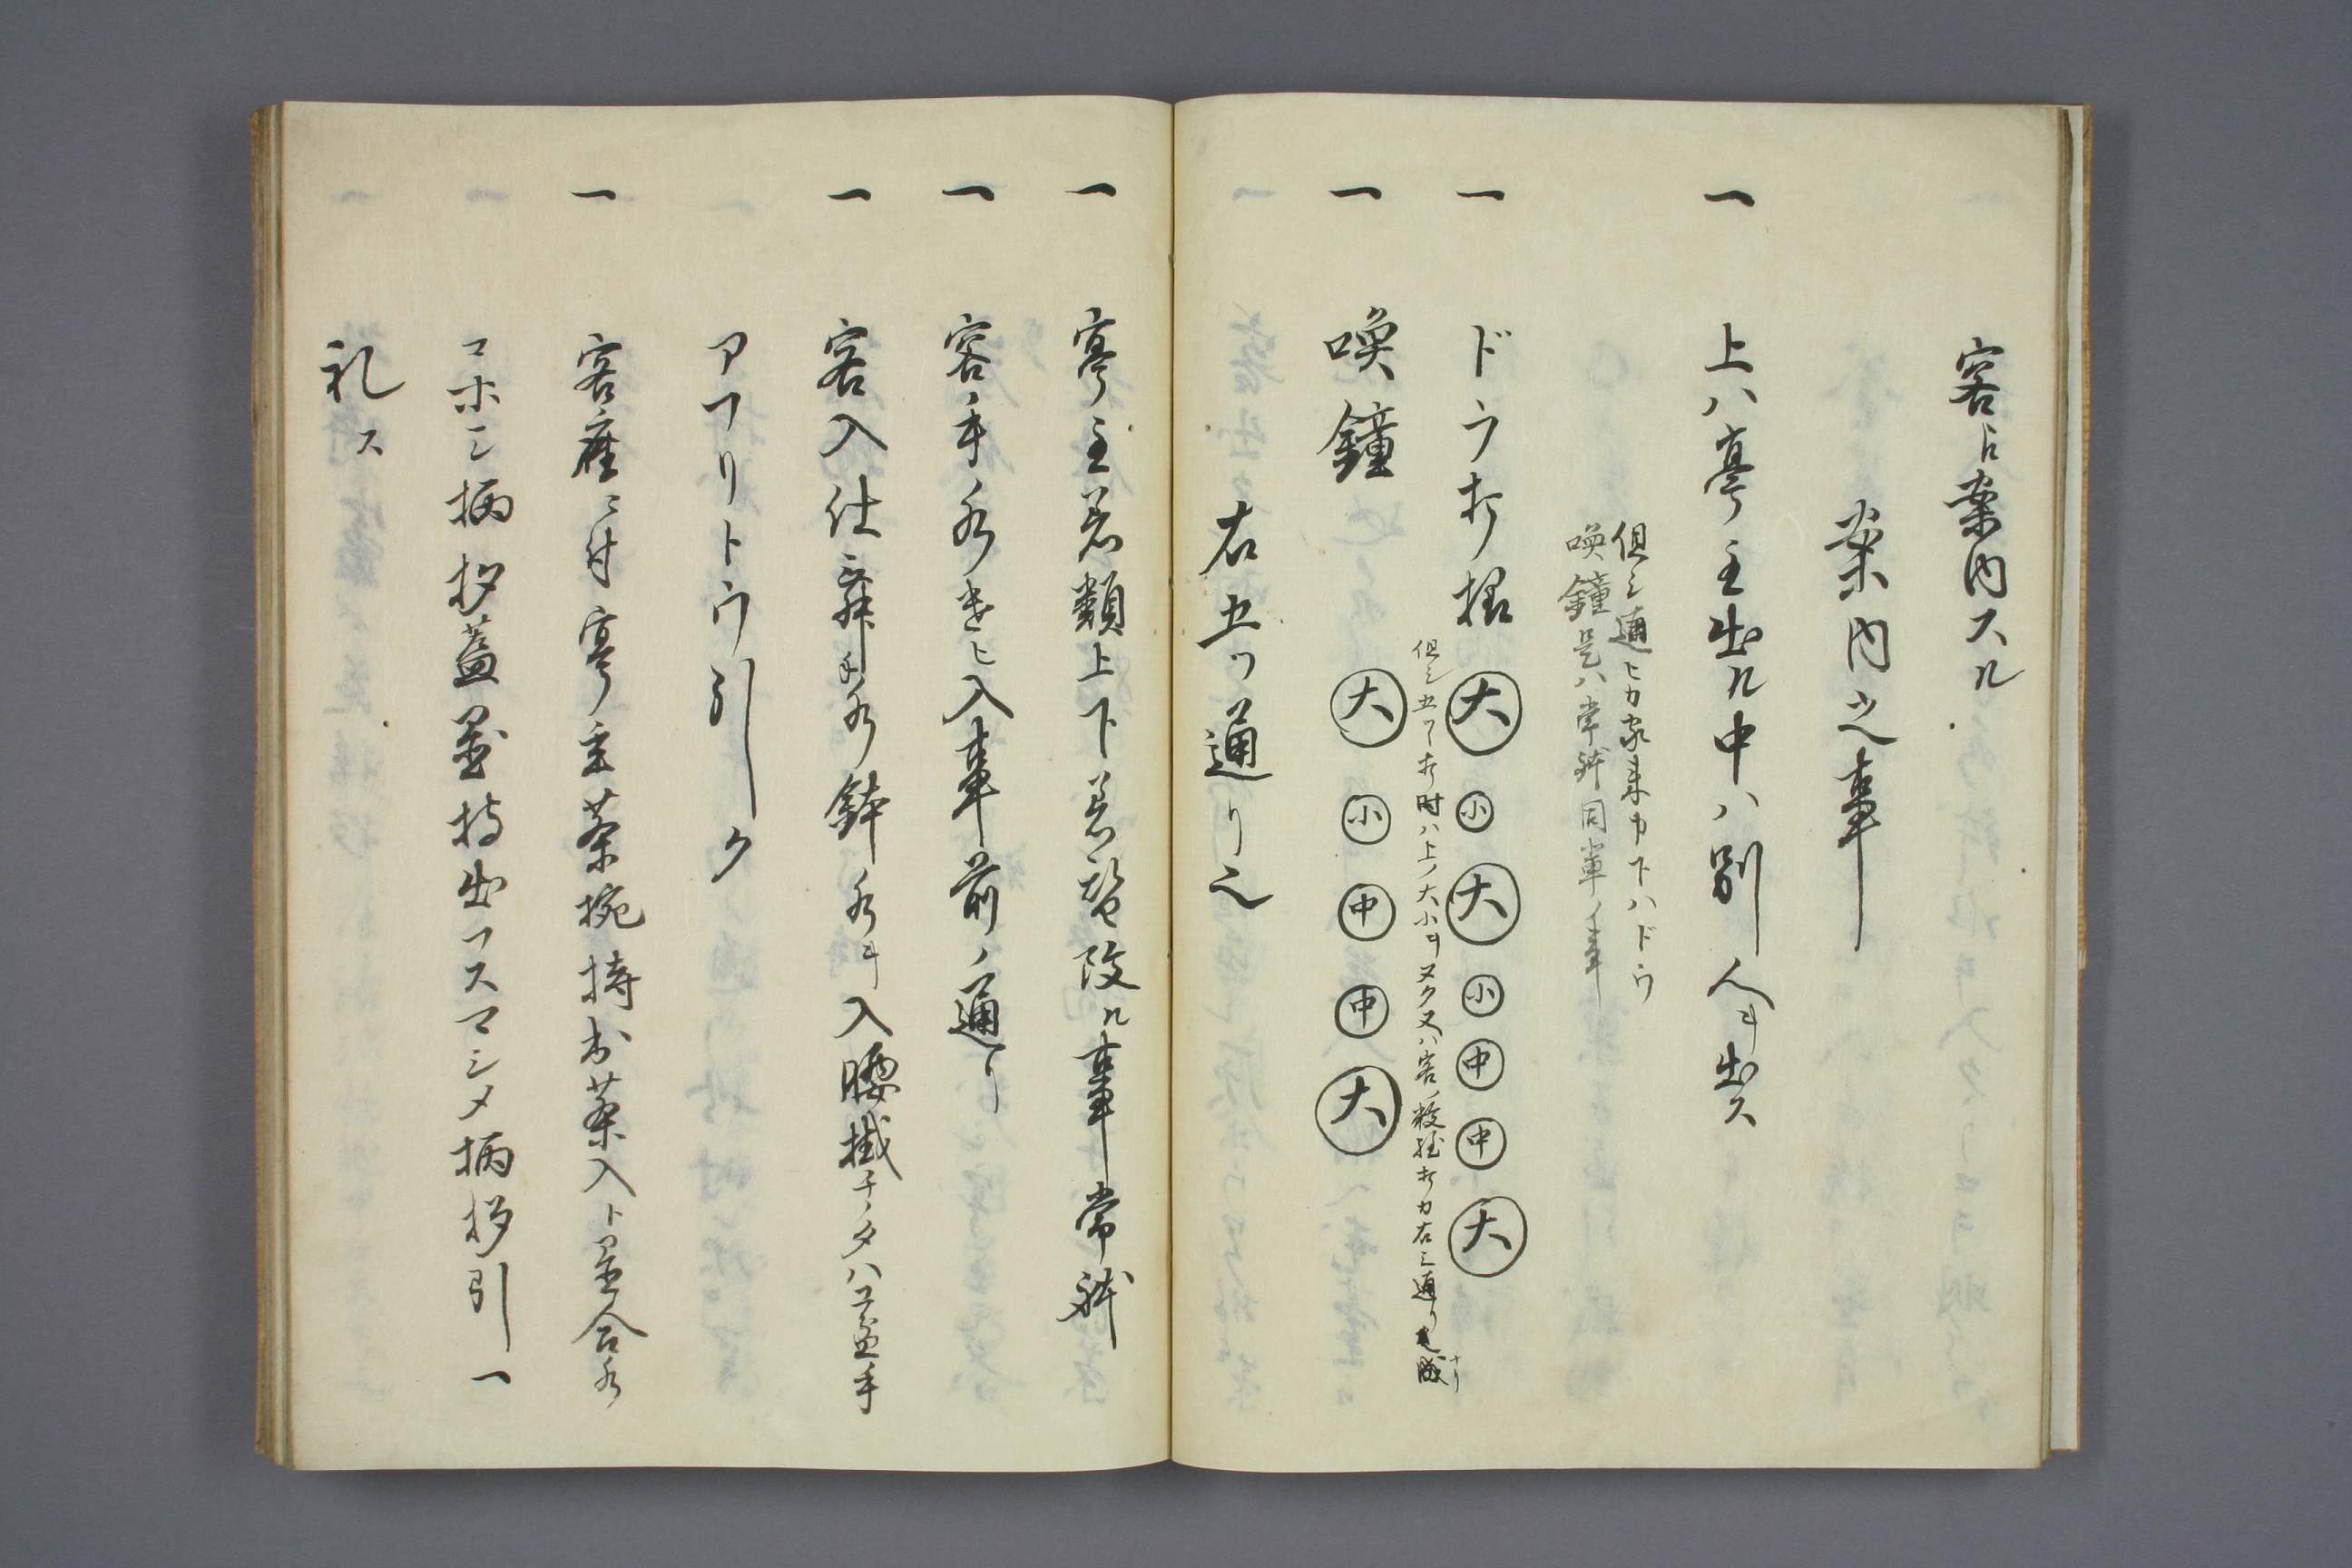 客ヨリ案内スル
案内之事
一 上ハ亭主出ル中ハ別人ヲ出ス
但シ通ヒカ家来カ下ハドウ
喚鐘是ハ常躰同輩ノ事
一 ドウ打様 大 小 大 小 中 中 大
但シ五ツ打時ハ上ノ大小ヲヌク又ハ客ノ数程打カ右之通リ
ナリ
一 喚鐘 大 小 中 中 大
右五ツ通リ之
一 亭主着類上下着替改ル事常躰
一 客手水遣ヒ入事前ノ通リ
一 客入仕舞手水鉢水ヲ入腰掛チタハコ盆手
アフリトウ引ク
一 客座ニ付亭主茶椀持出茶入ト置合水
コホシ柄杓蓋置持出フスマシメ柄杓引一
礼ス